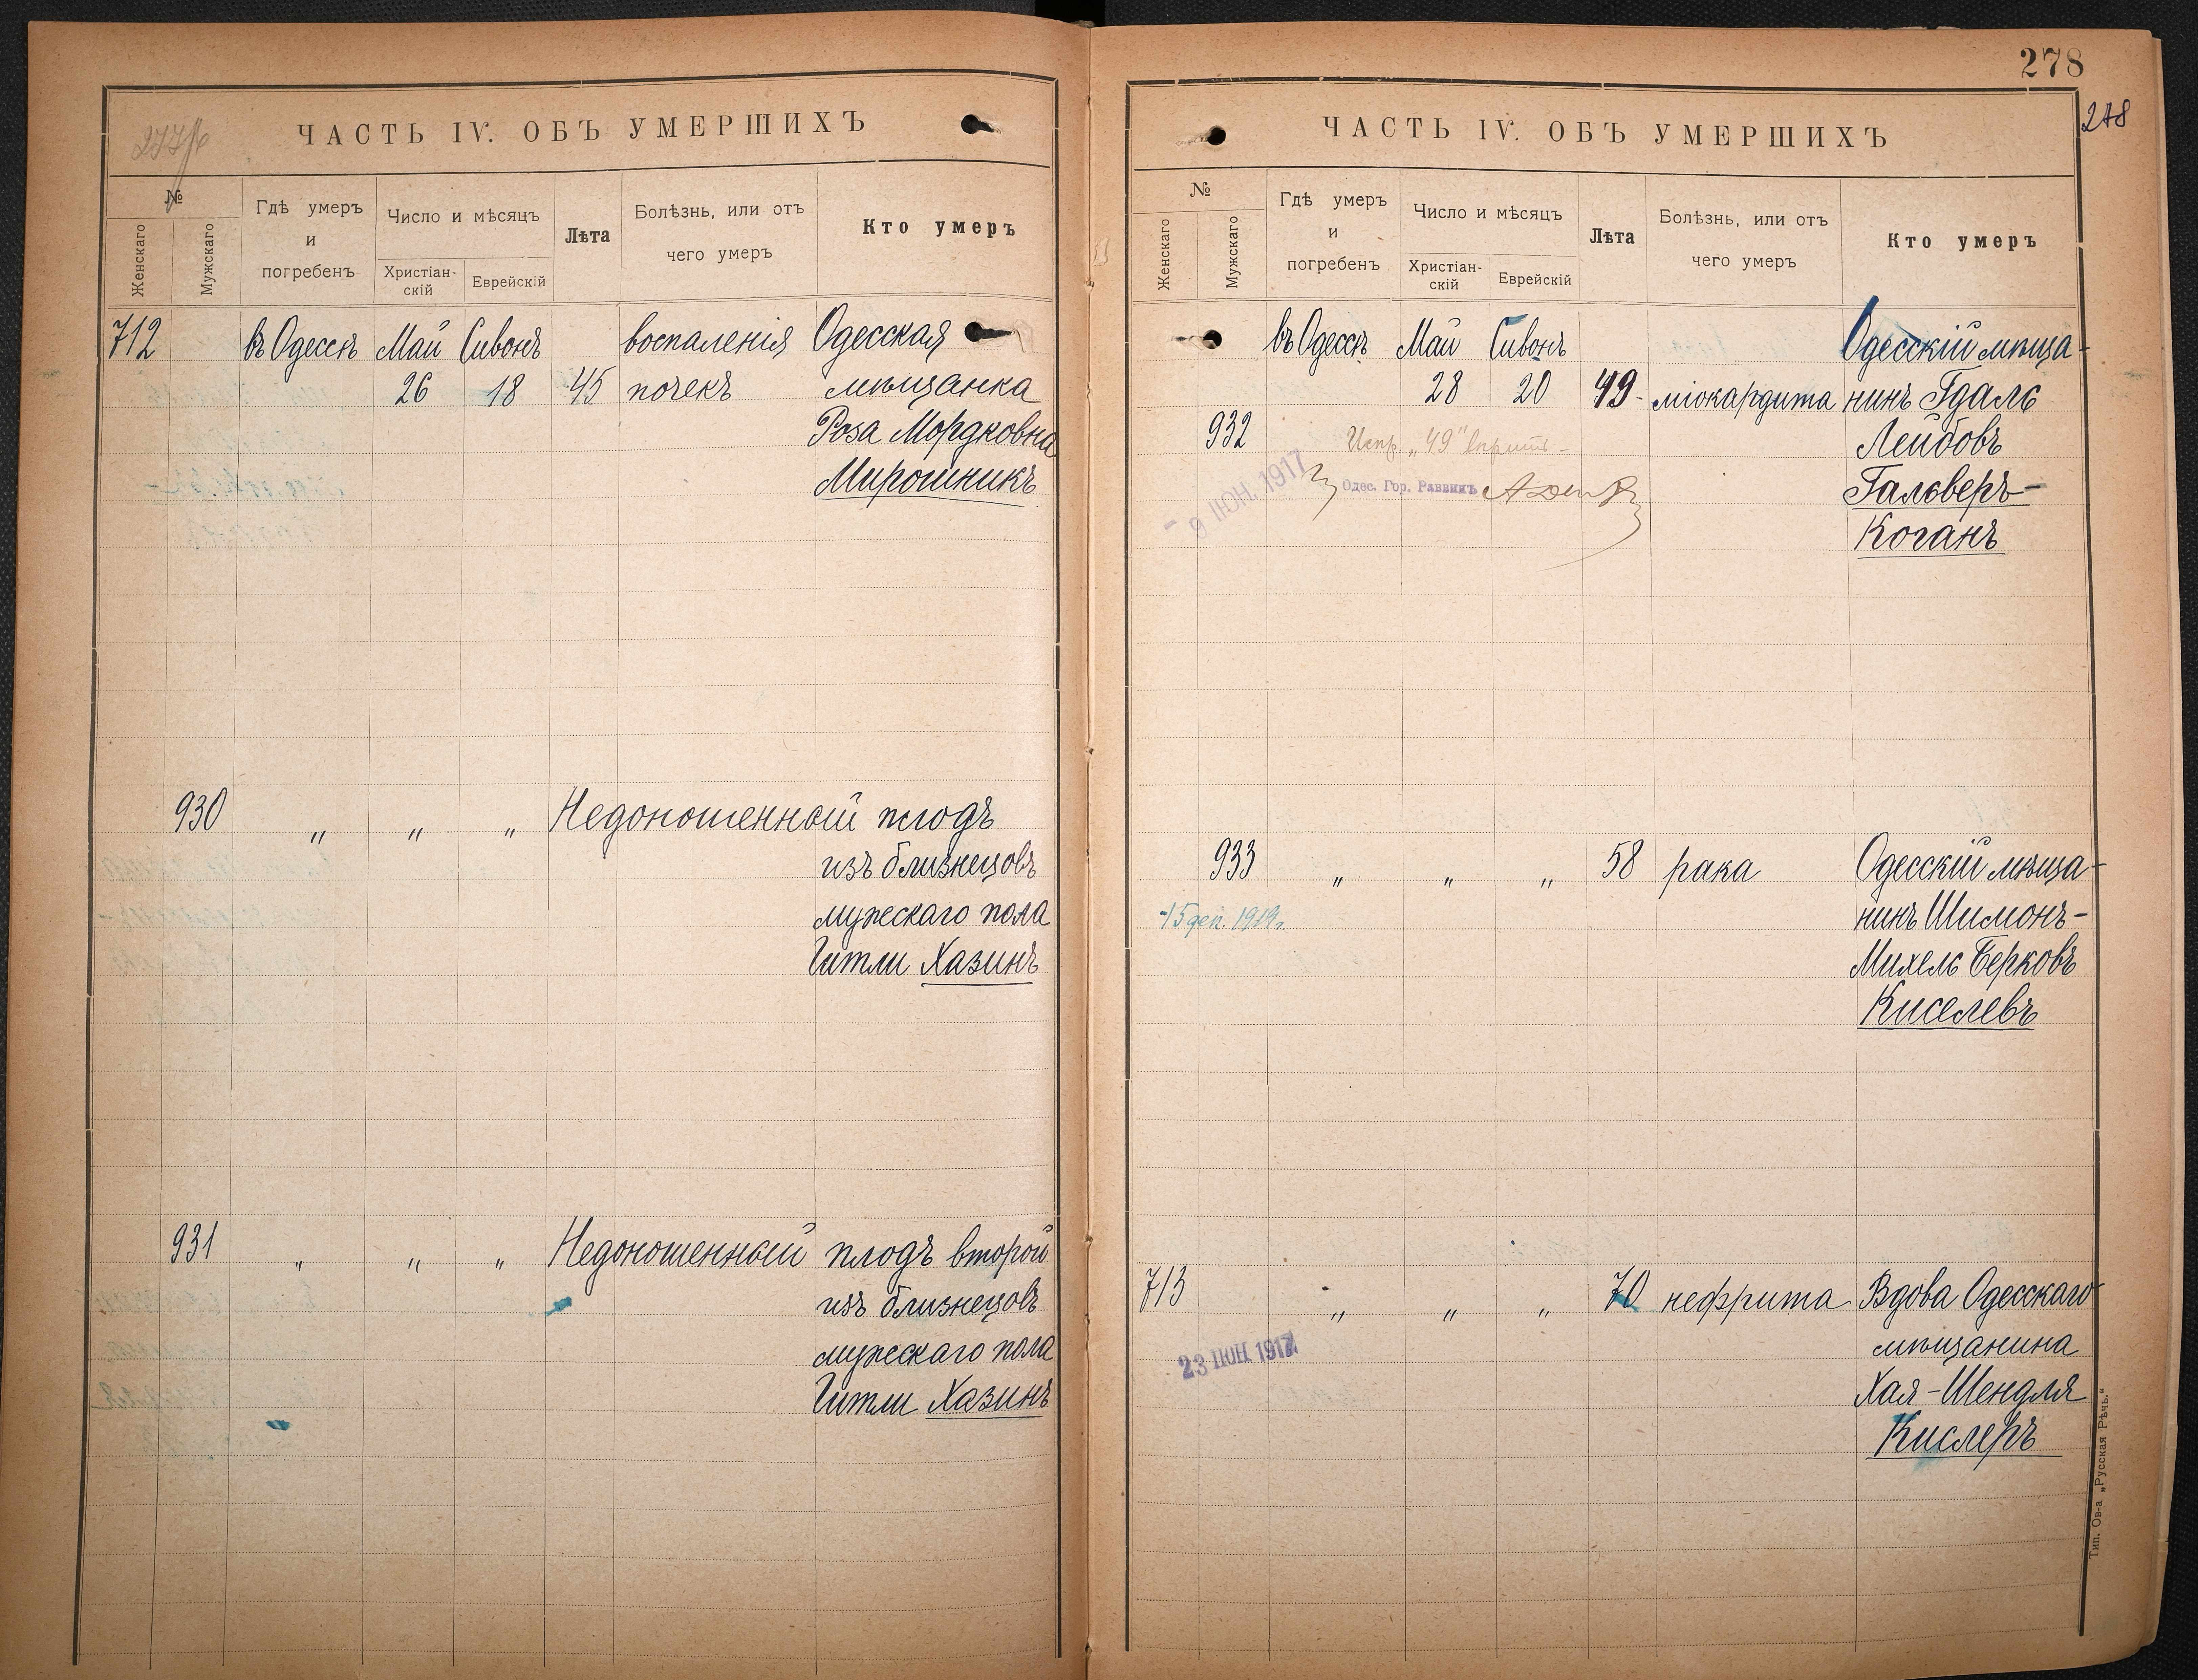 278
278
ЧАСТЬ IV. ОБЪ УМЕРШИХЪ
№
Женскаго
Мужскаго
Гдѣ умеръ
и
погребенъ
Число и мѣсяцъ
Христіан-
скій
Еврейскій
Лѣта
Болѣзнь, или отъ
чего умеръ
Кто умеръ
712 въ Одессѣ Май Сивонъ воспаленія Одесская
26 18 45 почекъ мѣщанка
Роза Мордковна
Мирошникъ
930 " " " Недоношенный плодъ
изъ близнецовъ
мужескаго пола
Гитли Хазинъ
931 " " " Недоношенный плодъ второй
изъ близнецовъ
мужескаго пола
Гитли Хазинъ
ЧАСТЬ IV. ОБЪ УМЕРШИХЪ
№
Женскаго
Мужскаго
Гдѣ умеръ
и
погребенъ
Число и мѣсяцъ
Христіан-
скій
Еврейскій
Лѣта
Болѣзнь, или отъ
чего умеръ
Кто умеръ
въ Одессѣ Май Сивонъ Одесскій мѣща-
28 20 49 міокардита нинъ Гдаль
932 Испр. „49" Лейбовъ
9 ІЮН. 1917 Одес. Гор. Раввинъ Гальверъ-
Коганъ
933 " " " 58 рака Одесскій мѣща-
нинъ Шимонъ-
Михель Берковъ
Киселевъ
713 " " " 70 нефрита Вдова Одесскаго
23 ІЮН. 1917 мѣщанина
Хая-Шендля
Кислеръ
Тип. Ов-а „Русская Рѣчь."